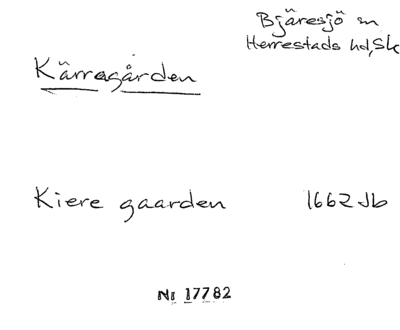 Bjäresjö sn
Herrestads hd, Sk
Kärragården
Kiere gaarden 1662 Jb
Nr 17782